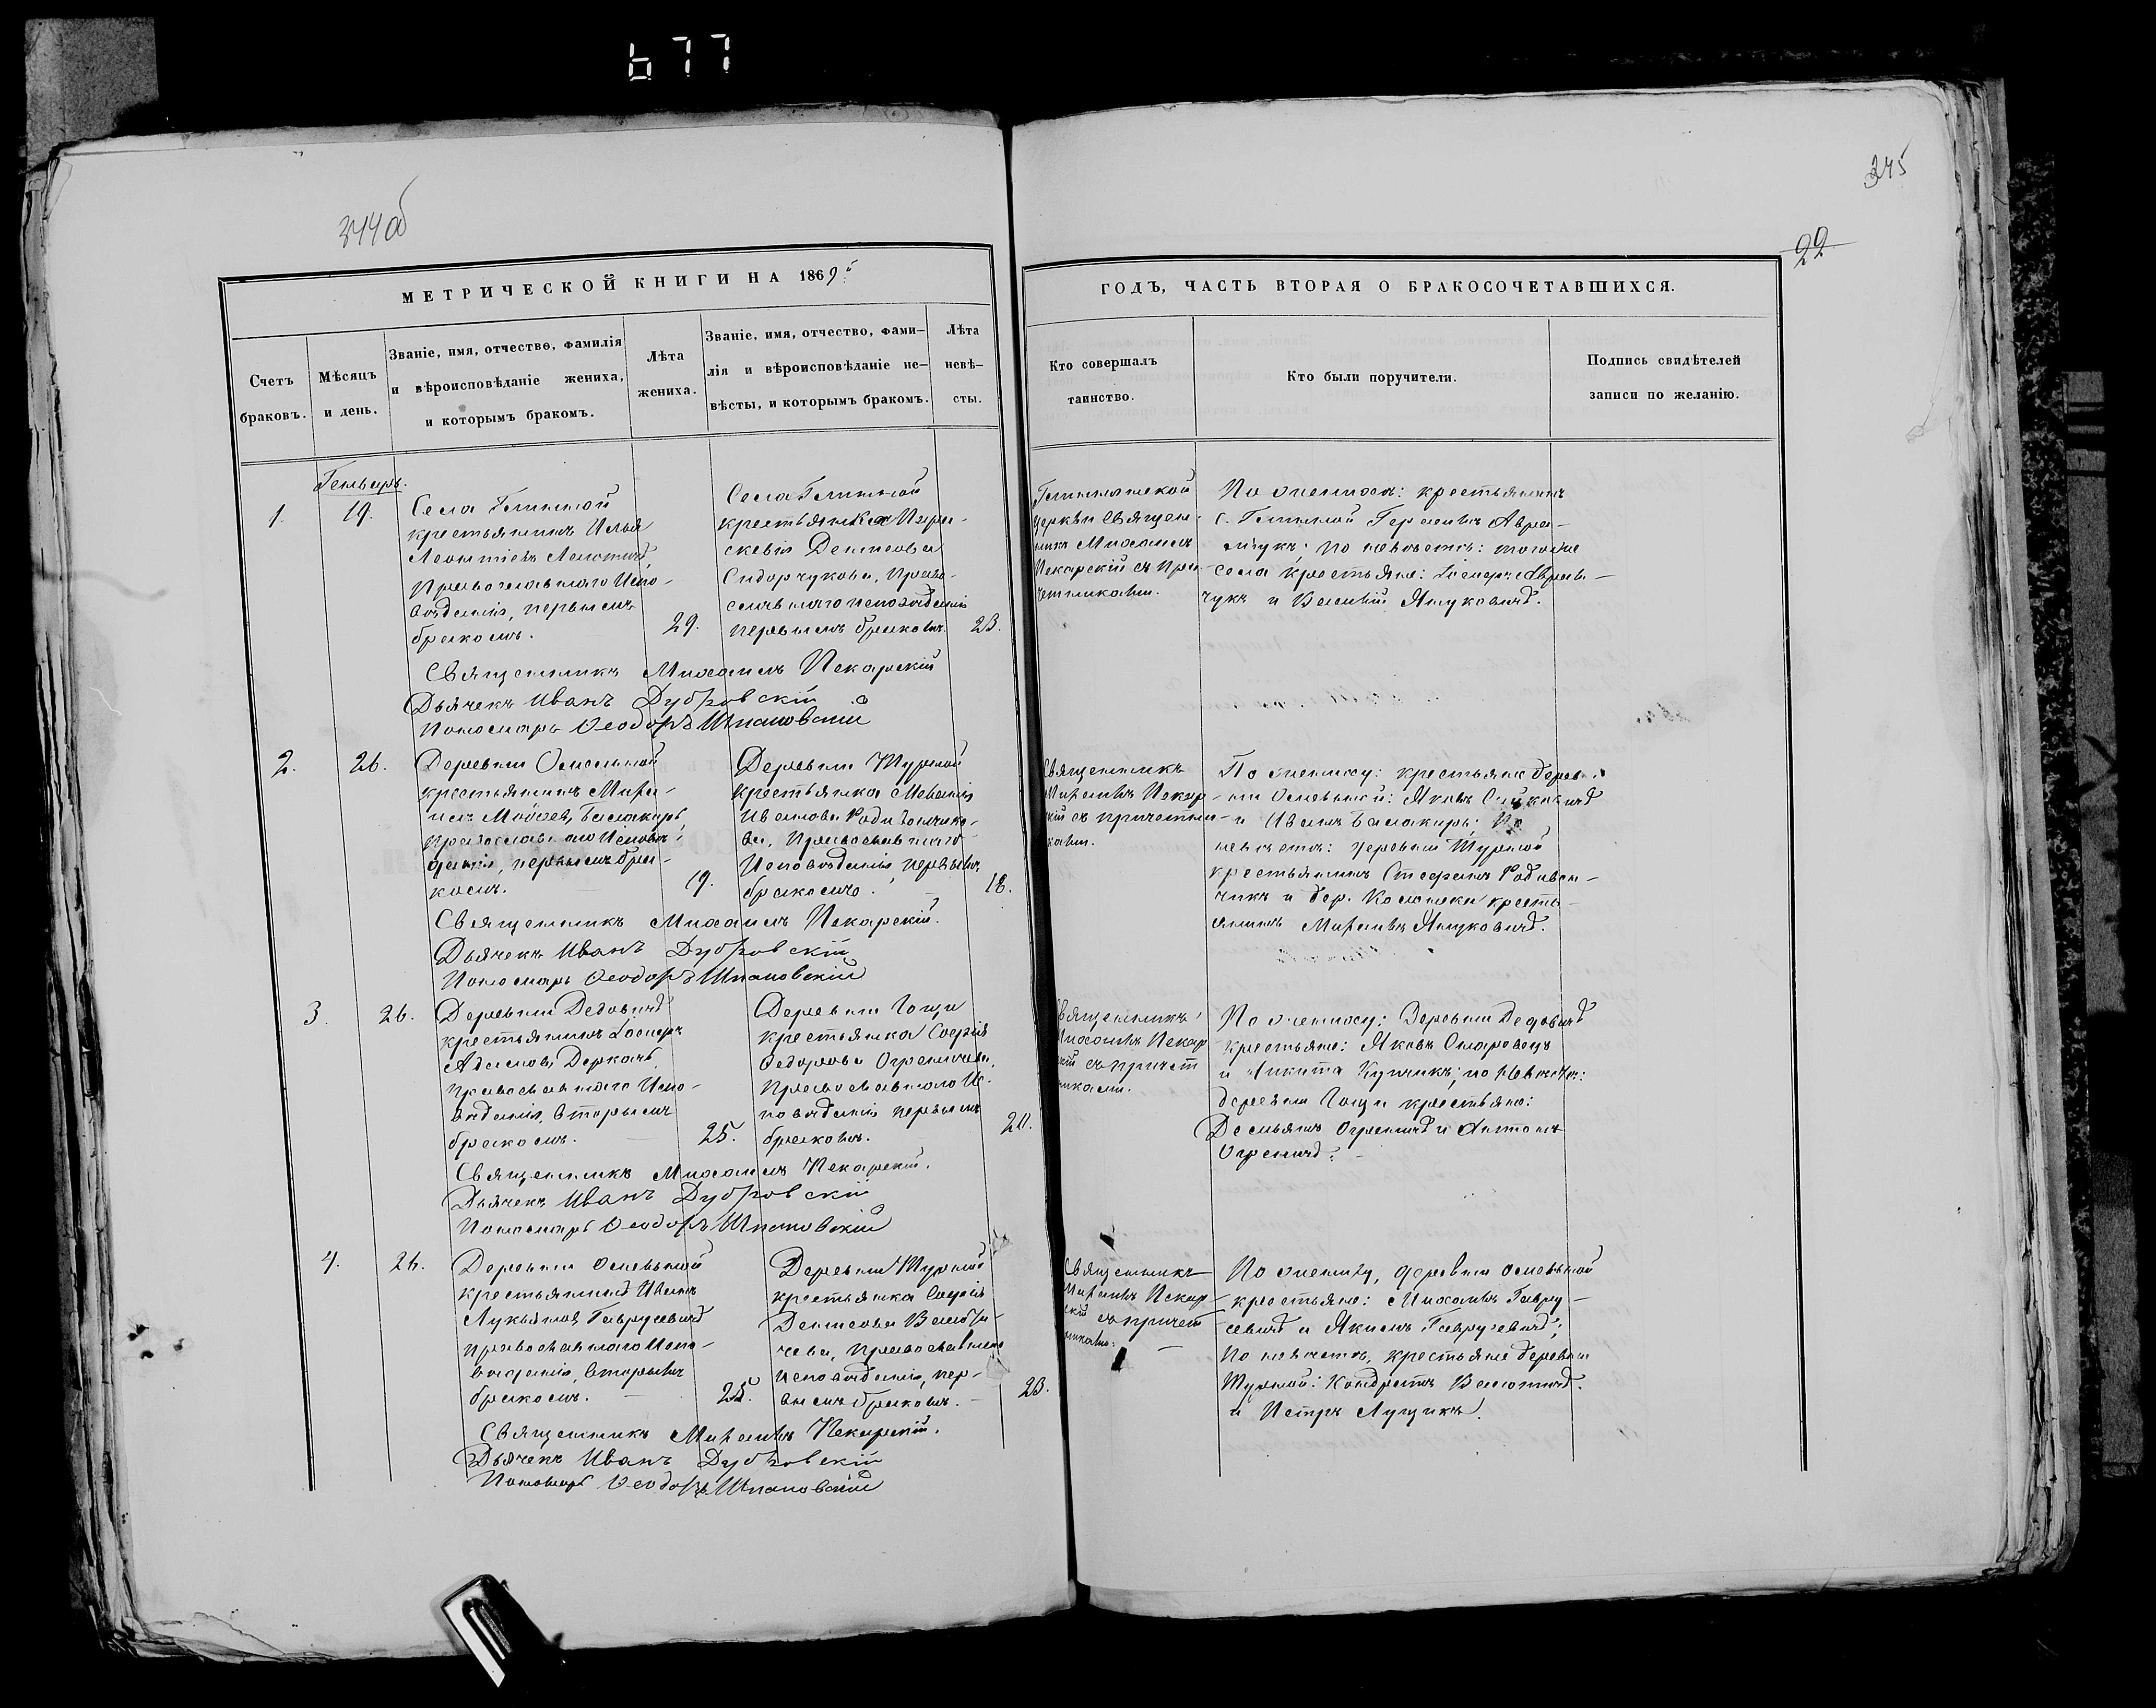 677
344об
345
22
МЕТРИЧЕСКОЙ КНИГИ НА 1869й
ГОДЪ, ЧАСТЬ ВТОРАЯ О БРАКОСОЧЕТАВШИХСЯ.
Счетъ браковъ.
Мѣсяцъ и день.
Званіе, имя, отчество, фамилія
и вѣроисповѣданіе жениха,
и которымъ бракомъ.
Лѣта
жениха.
Званіе, имя, отчество, фами-
лія и вѣроисповѣданіе не-
вѣсты, и которымъ бракомъ.
Лѣта
невѣ-
сты.
Кто совершалъ
таинство.
Кто были поручители.
Подпись свидѣтелей
записи по желанію.
Генварь.
1.
19.
Села
крестьянинъ Илья
Леонтіевъ
Православнаго Испо-
вѣданія, первымъ
бракомъ.
29.
Села
крестьянка Пара-
скевія Денисова
Сидорчукова, Право-
славнаго исповѣданія
первымъ бракомъ.
23.
церкви Священ-
никъ Михаилъ
Пекарскій съ при-
четниками.
По женихѣ: крестьянинъ
с. Герасимъ
по невѣстѣ: того же
села крестьяне:
чукъ и Василій Януковичъ.
Священникъ Михаилъ Пекарскій
Дьячекъ Иванъ Дубровскій
Пономарь Ѳеодоръ Шпаковскій
2.
26.
Деревни
крестьянинъ
Балакирь,
православнаго Исповѣ-
данія, первымъ бра-
комъ.
19.
Деревни Турной
крестьянка Меланія
Иванова
ва, Православнаго
Исповѣданія первымъ
бракомъ.
18.
Священникъ
Михаилъ Пекар-
скій съ причетни-
ками.
По жениху: крестьяне дерев-
ни Осмьной: Яковъ
и Иванъ Балакирь; По
невѣстѣ: деревни Турной
крестьянинъ Стефанъ Родивон-
чикъ и дер. кресть-
янинъ Михаилъ Януковичъ.
Священникъ Михаилъ Пекарскій.
Дьячекъ Иванъ Дубровскій
Пономарь Ѳеодоръ Шпаковскій
3.
26.
Деревни Дедовичъ
крестьянинъ
Адамовъ Деркачъ,
православнаго Испо-
вѣданія, вторымъ
бракомъ.
25.
Деревни Гощи
крестьянка Софія
Ѳедорова
Православнаго Ис-
повѣданія первымъ
бракомъ.
20.
Священникъ
Михаилъ Пекар
скій съ причет
никами.
По жениху: Деревни Дедовичъ
крестьяне: Яковъ
и Никита по невѣстѣ:
деревни Гощи крестьяне:
Демьянъ и Антонъ
Священникъ Михаилъ Пекарскій.
Дьячекъ Иванъ Дубровскій
Пономарь Ѳеодоръ Шпаковскій
4.
26.
Деревни
крестьянинъ Иванъ
Лукьяновъ Гаврусевичъ
православнаго Испо-
вѣданія, вторымъ
бракомъ.
25.
Деревни Турной
крестьянка Софія
Денисова
чева, православнаго
исповѣданія, пер-
вымъ бракомъ.
23.
Священникъ
Михаилъ Пекар
скій съ причет
никами.
По жениху, деревни
крестьяне: Михаилъ Гавру-
севичъ и Якимъ Гаврусевичъ;
по невѣстѣ, крестьяне деревни
Турной: Кондратъ
и Петръ Лущикъ.
Священникъ Михаилъ Пекарскій.
Дьячекъ Иванъ Дубровскій
Пономарь Ѳеодоръ Шпаковскій